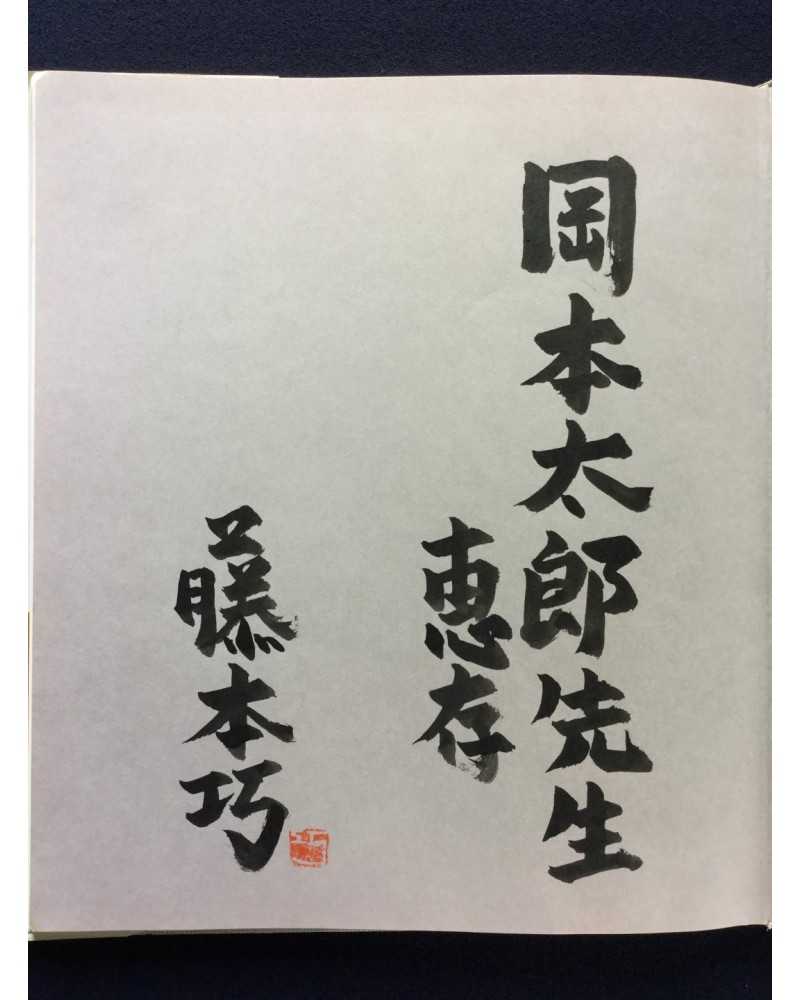 岡本太郎先生
恵存
藤本巧